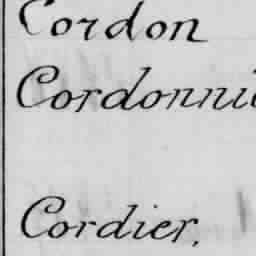 Cordon
Cordonni
Cordier.